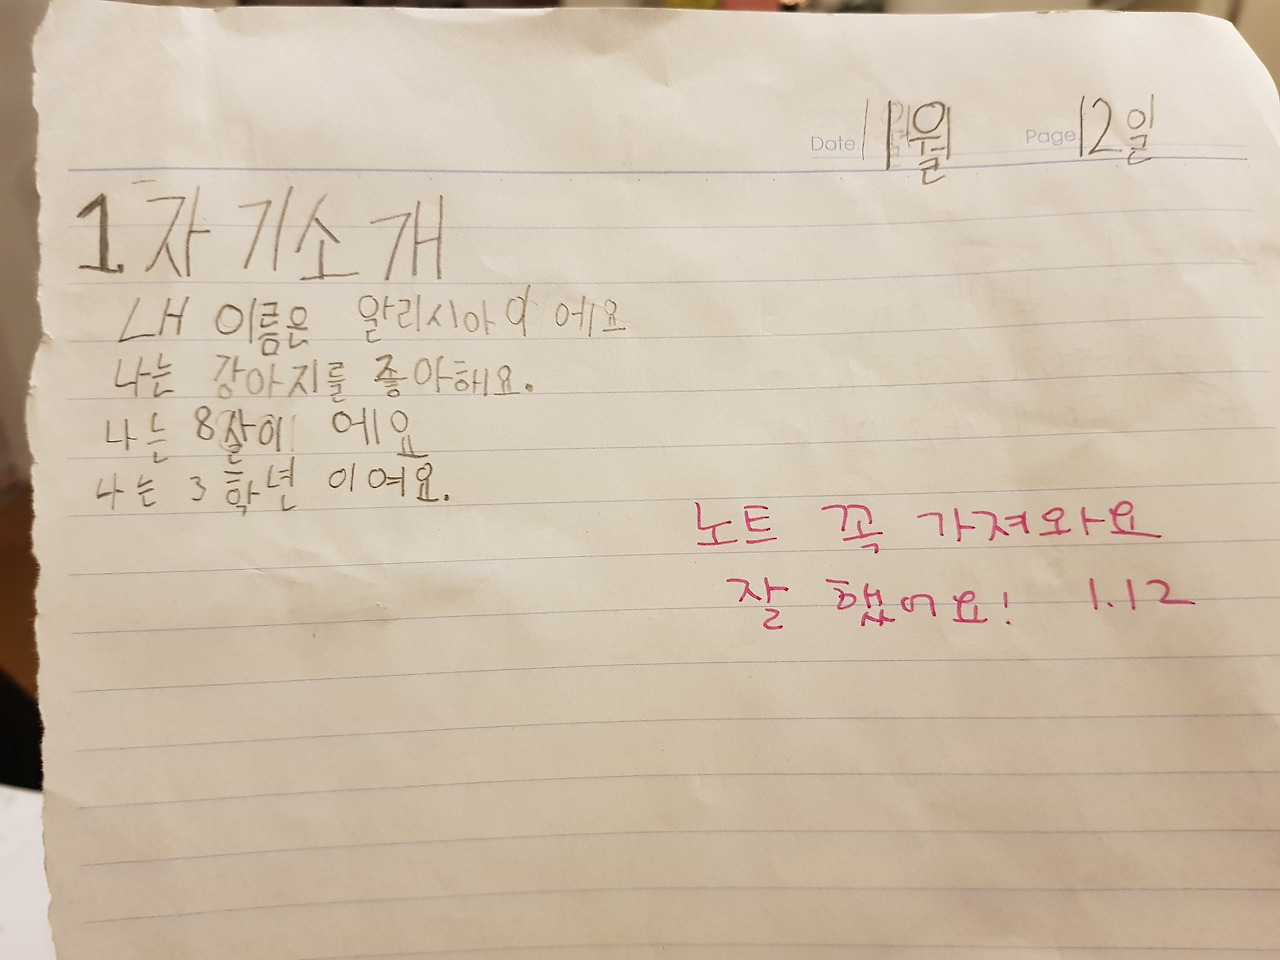 Date. 1월 Page. 12일
1. 자기소개
내 이름은 알리시아이에요
나는 강아지를 좋아해요.
나는 8살이 에요
나는 3학년 이여요.
노트 꼭 가져와요
잘 했어요! 1.12